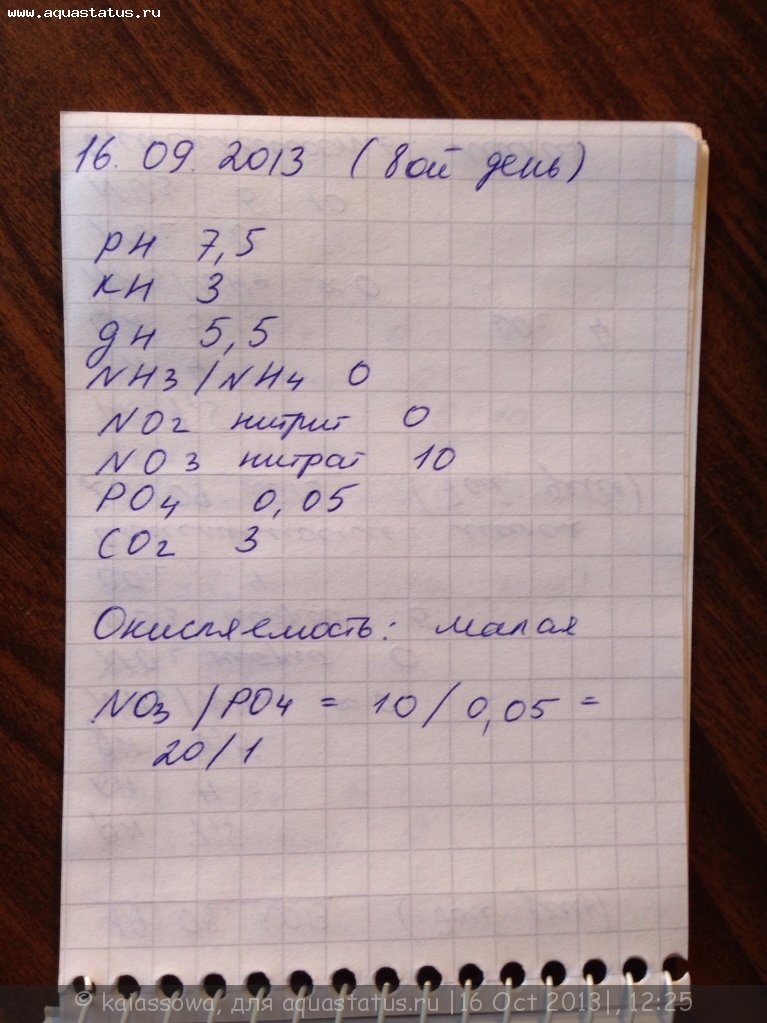 www.aquastatus.ru
16. 09. 2013 (8ой день)
pH 7,5
кH 3
gH 5,5
NH3 / NH4 0
NO2 нитрит 0
NO3 нитрат 10
PO4 0,05
CO2 3
Окисляемость: малая
NO3 / PO4 = 10 / 0,05 =
20 / 1
© kalassowa, для aquastatus.ru |16 Oct 2013|, 12:25